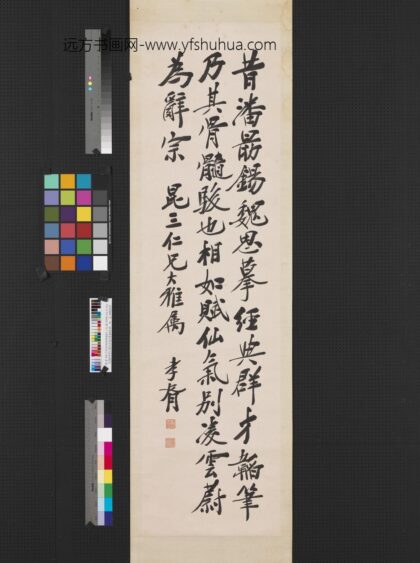 远方书画网-www.yfshuhua.com
昔潘勗錫魏思摹經典群才韜筆
乃其骨髓駿也相如賦仙氣別凌雲蔚
為辭宗 昆三仁兄大雅属
孝胥